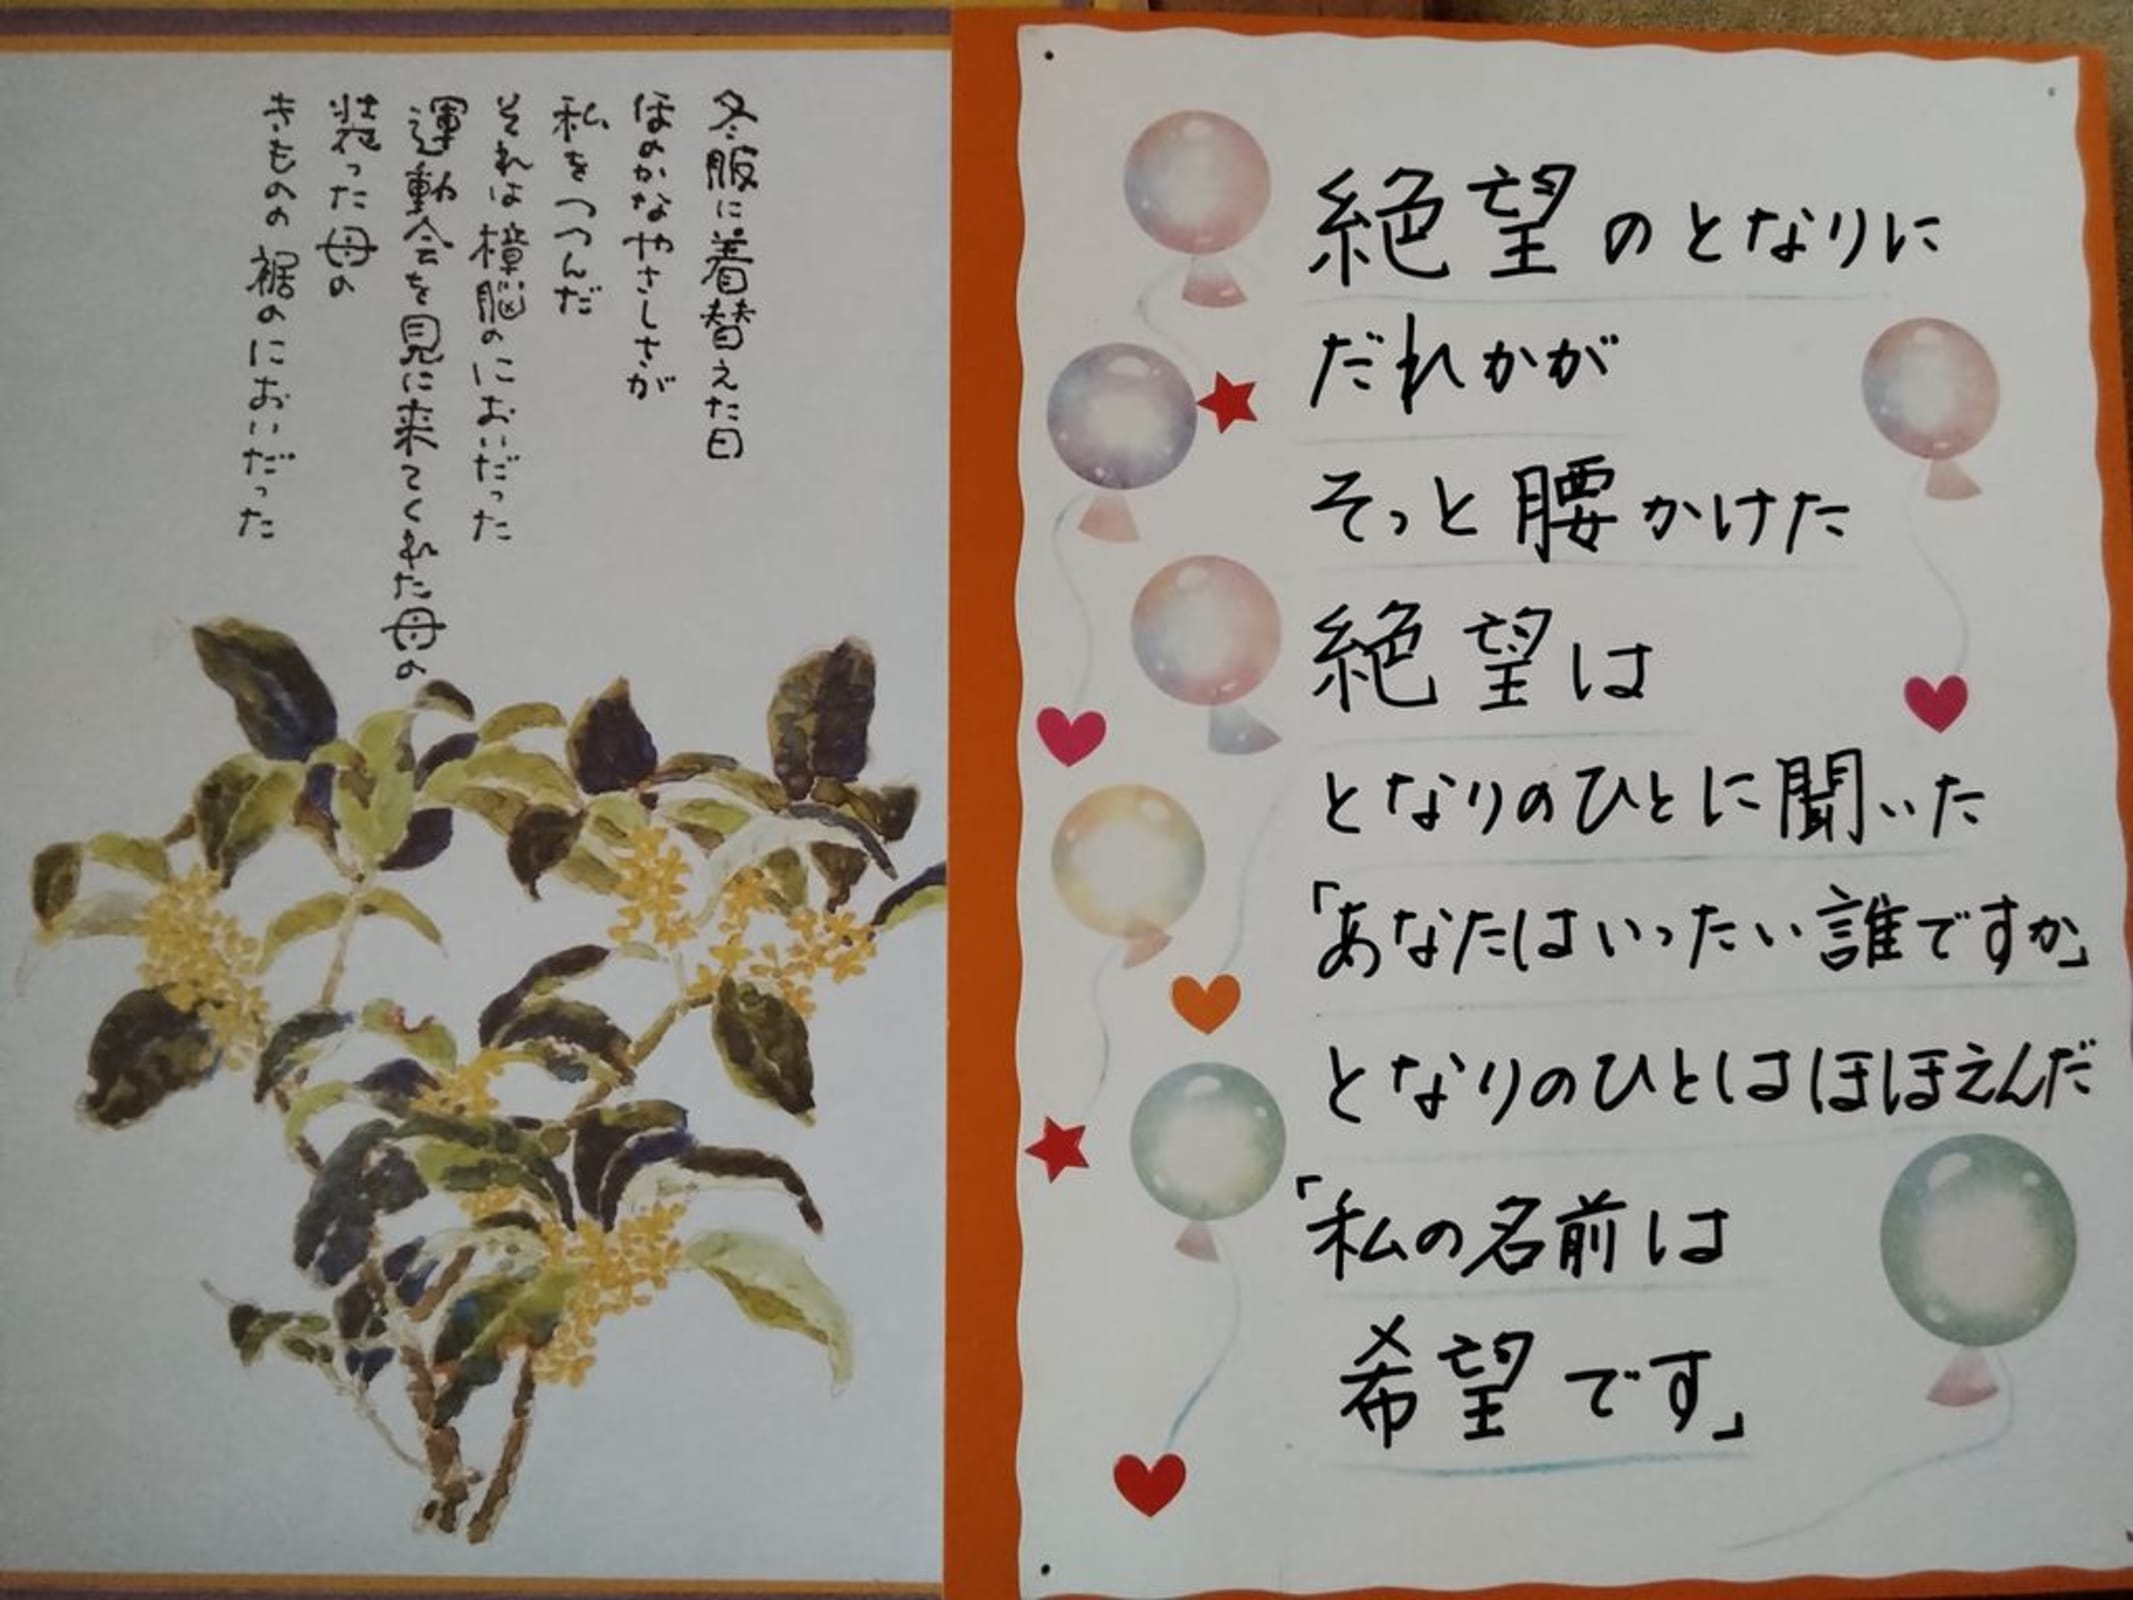 冬服に着替えた日
ほのかなやさしさが
私をつつんだ
それは樟脳のにおいだった
運動会を見に来てくれた母の
装った母の
きものの裾のにおいだった
絶望のとなりに
だれかが
そっと腰かけた
絶望は
となりのひとに聞いた
「あなたはいったい誰ですか」
となりのひとはほほえんだ
「私の名前は
希望です」